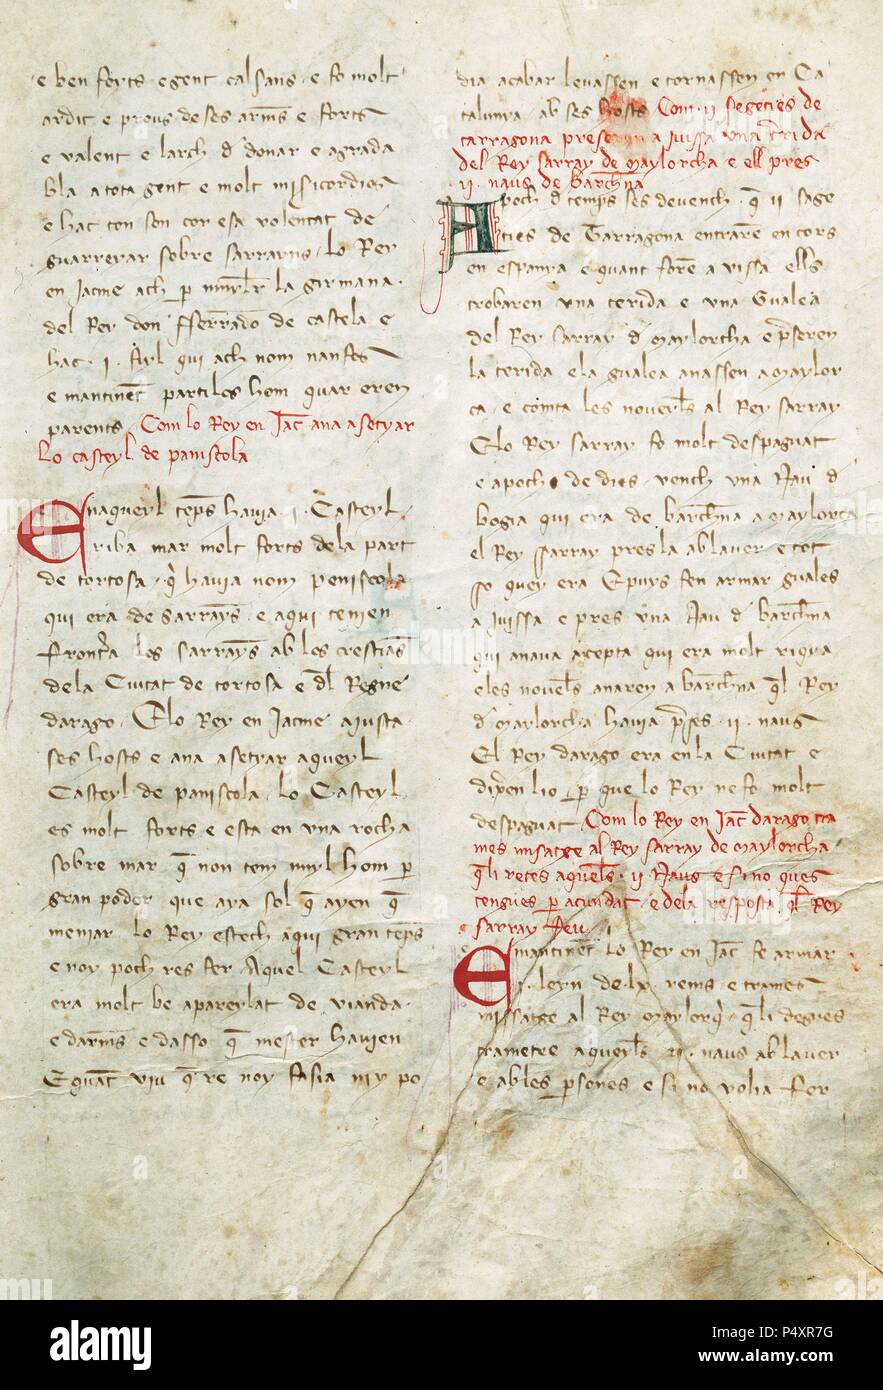 e ben forts e gent calsans e fo molt
ardit e prous de ses armes e forts
e valent e larch d donar e agrada
bla a tota gent e molt misicordios
e hac ton son cor e sa volentat de
guarreyar sobre sarrayns lo Rey
en Jacme ach p la girmana
del Rey don fferrado de castela e
hac .i. fiyl qui ach nom nanfos
e mantinet partilos hom quar eren
parents Com lo Rey en Jac ana asetyar
lo casteyl de paniscola
Enaqueyl temps havia .i. Casteyl
riba mar molt forts dela part
de tortosa q havia nom peniscola
qui era de sarrayns e aqui tenien
frontra los sarrayns ab los crestias
dela Ciutat de tortosa e dl Regne
darago Elo Rey en Jacme ajusta
ses hosts e ana asetyar aqueyl
Casteyl de paniscola lo Casteyl
es molt forts e esta en una rocha
sobre mar q non tem myl hom p
gran poder que aya sol q ayen q
meniar lo Rey estech aqui gran temps
e noy poch res fer Aquel Casteyl
era molt be apareylat de vianda
e darms e dasso q mester havien
E quat viu q re noy fasia ni y po
dia acabar levassen e tornassen en Ca
talunya ab ses hosts Com .ii. segeties de
tarragona preseren a juissa una terida
del Rey sarray de maylorcha e ell pres
.ii. naus de barchna
Apoch d temps ses devench q ii sage
ties de Tarragona entraren en cors
en espanya e quant foren a vissa ells
trobaren una terida e una Gualea
del Rey sarray d maylorcha e pseren
la terida e la gualea anassen a maylor
ca e comta les noveyls al Rey sarray
Elo Rey sarray fo molt despaguat
e apoch de dies vench una Nau d
bogia qui era de barchna a maylorca
el Rey sarray pres la ab laver e tot
so quey era E puys feu armar guales
a juissa e pres una Nau d barchna
qui anava a cepta qui era molt riqua
e les noveyls anaren a barchna ql Rey
d maylorcha havia pses .ii. naus
El Rey darago era en la Ciutat e
dixen lio p que lo Rey ne fo molt
despaguat Com lo Rey en Jac darago tra
mes misatge al Rey sarray de maylorcha
qli retes aqueyls .ii. Naus e si no ques
tengues p acundat e dela resposta ql Rey
sarray feu
Emantinet lo Rey en Jac fe armar
.i. leyn de .lx. rems e trames
missatge al Rey maylorq qli degues
trametre aqueyls .ii. naus ab laver
e ab les psones e si no volia fer